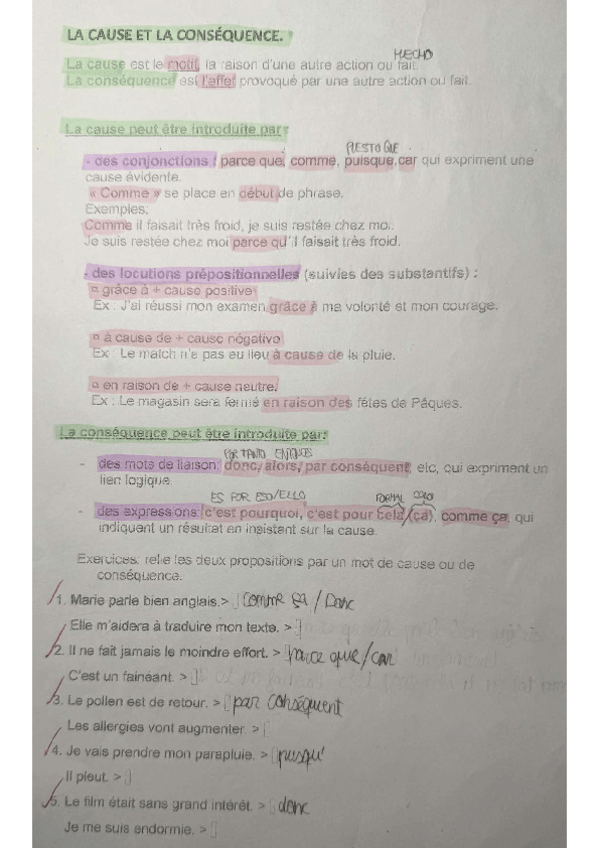 LA CAUSE ET LA CONSÉQUENCE.
HECHO
La cause est le motif, la raison d'une autre action ou fait.
La conséquence est l'effet provoqué par une autre action ou fait.
La cause peut être introduite par:
PUESTO QUE
- des conjonctions : parce que, comme, puisque, car qui expriment une
cause évidente.
« Comme » se place en début de phrase.
Exemples:
Comme il faisait très froid, je suis restée chez moi.
Je suis restée chez moi parce qu'il faisait très froid.
- des locutions prépositionnelles (suivies des substantifs) :
¤ grâce à + cause positive
Ex : J'ai réussi mon examen grâce à ma volonté et mon courage.
¤ à cause de + cause négative
Ex : Le match n'a pas eu lieu à cause de la pluie.
¤ en raison de + cause neutre.
Ex : Le magasin sera fermé en raison des fêtes de Pâques.
La conséquence peut être introduite par:
POR TANTO ENTONCES
- des mots de liaison: donc, alors, par conséquent, etc, qui expriment un
lien logique.
ES POR ESO/ELLO FORMAL COLO
- des expressions: c'est pourquoi, c'est pour cela/(ça), comme ça, qui
indiquent un résultat en insistant sur la cause.
Exercices: relie les deux propositions par un mot de cause ou de
conséquence.
1. Marie parle bien anglais.> comme ça / Donc
Elle m'aidera à traduire mon texte. >
2. Il ne fait jamais le moindre effort. > parce que/car
C'est un fainéant. >
3. Le pollen est de retour. > par conséquent
Les allergies vont augmenter. >
4. Je vais prendre mon parapluie. > puisqu'
Il pleut. >
5. Le film était sans grand intérêt. > donc
Je me suis endormie. >